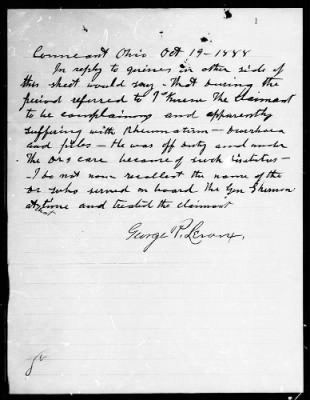 Conneaut Ohio Oct 19- 1888
In reply to queries on other side of
this sheet would say - that during the
period referred to I knew The Claimant
to be complaining and apparently
suffering with Rheumatism - Diarrhoea
and piles - He was off duty and under
the Drs care because of such
- I do not now recollect the name of the
Dr who served on board the Gen Sherman
at that time and treated the claimant
George P. Leroux.